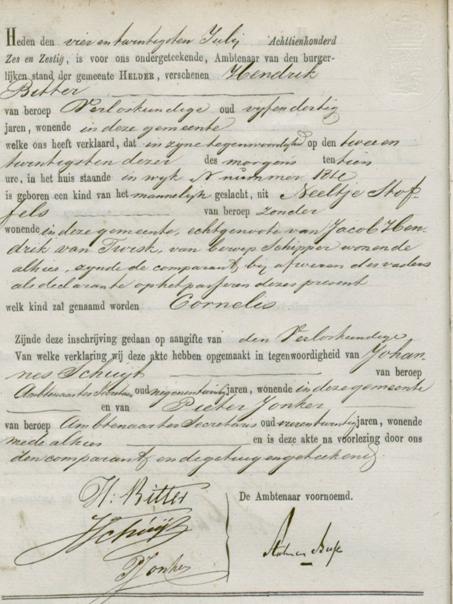 Heden den vier en twintigsten Julij Achttienhonderd
Zes en Zestig, is voor ons ondergeteekende, Ambtenaar van den burger-
lijken stand der gemeente HELDER, verschenen Hendrik
Bitter
van beroep Verloskundige oud vyfendertig
jaren, wonende in deze gemeente
welke ons heeft verklaard, dat in zyne tegenwoordigheid op den twee en
twintigsten dezer des morgens ten tien
ure, in het huis staande in wyk N nummer
is geboren een kind van het mannelijk geslacht, uit Neeltje Stof-
fels van beroep zonder
wonende in deze gemeente, echtgenoote van Jacob Hen-
drik van Twisk, van beroep Schipper wonende
alhier, zynde de comparant by afwezen des vaders
als declarante op het passeren dezes present
welk kind zal genaamd worden Cornelis
Zijnde deze inschrijving gedaan op aangifte van den Verloskundige
Van welke verklaring wij deze akte hebben opgemaakt in tegenwoordigheid van Johan-
nes Schuijt van beroep
Ambtenaar ter Secretarie oud negenentwintig jaren, wonende in deze gemeente
en van Pieter Jonker
van beroep Ambtenaar ter Secretarie oud vierentwintig jaren, wonende
mede alhier en is deze akte na voorlezing door ons
den comparant en de getuigen geteekend
H: Bitter
De Ambtenaar voornoemd.
JSchuijt
PJonker